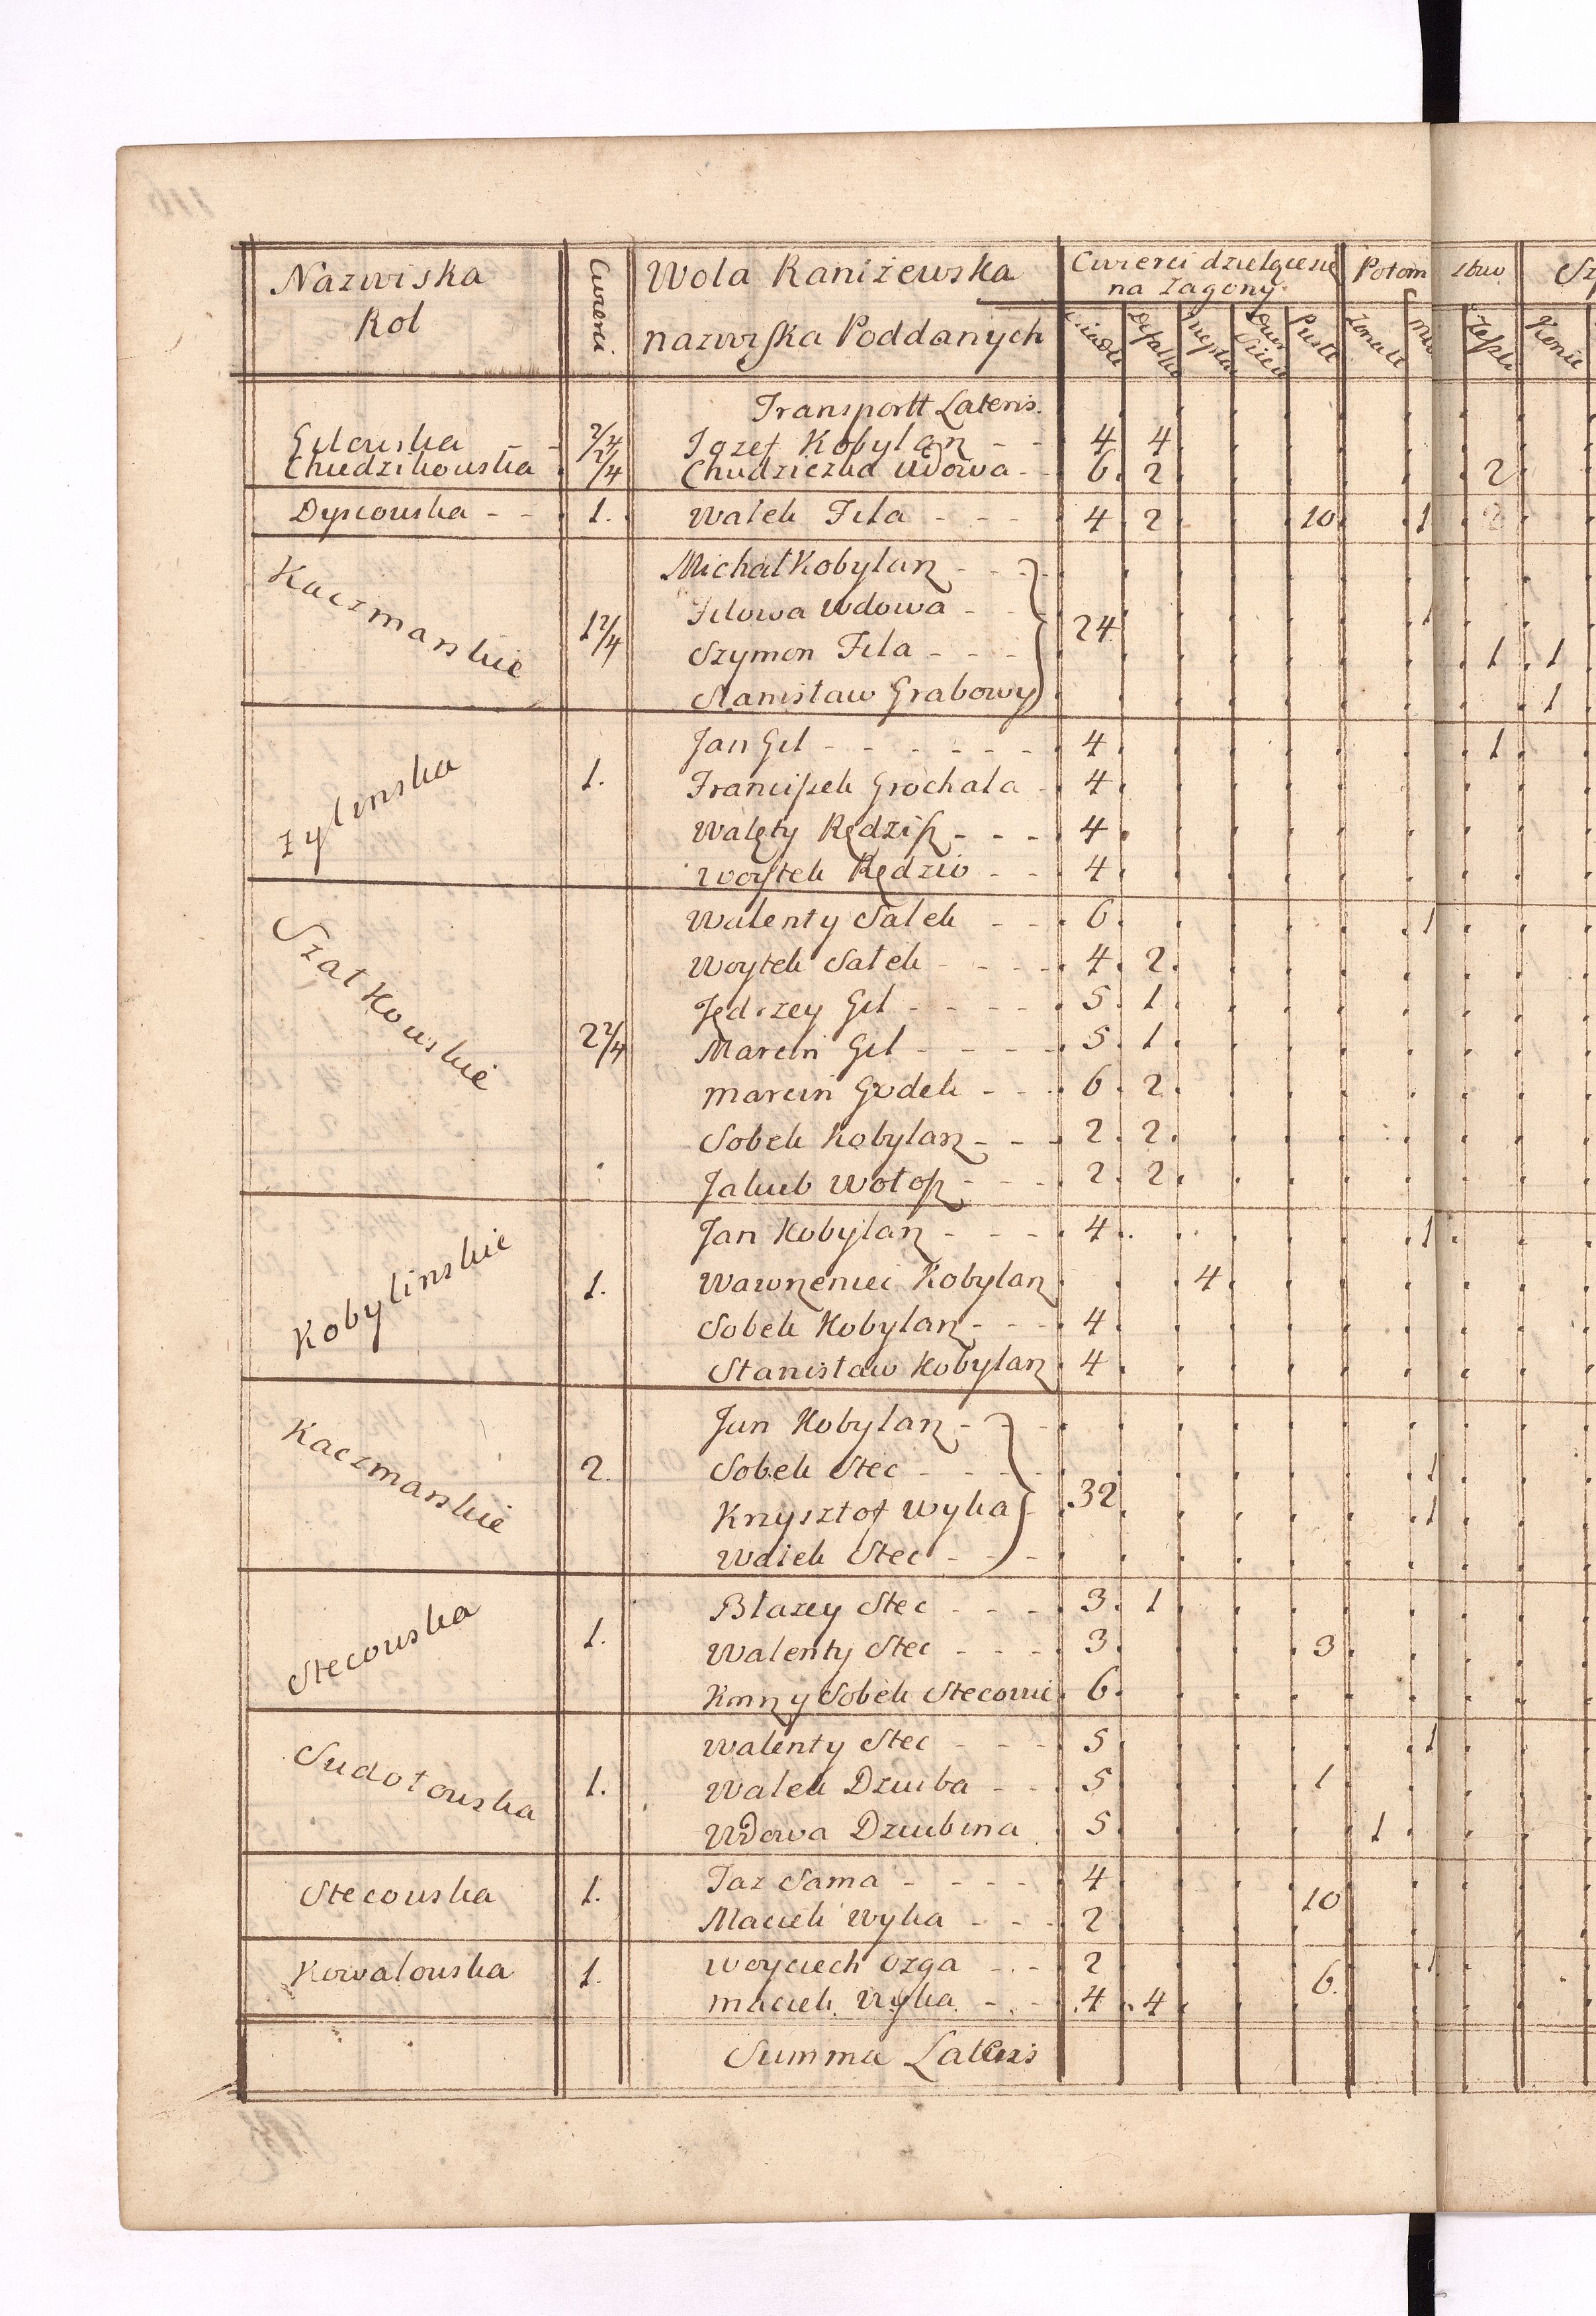 Nazwiska Rol | Cwierci. | Wola Raniżewska nazwiska Poddanych | Cwierci dzielące się na Zagony | Potom stwo
Siadłe | Defalka | Puste | Zonate | Konie
Transportt Lateris.
Gilowska - - | 2/4 | Jozef Kobylarz - - | 4 | 4
Chudzikowska | 2/4 | Chudziczka Wdowa - | 6 | 2 | 2
Dyscowska - - | 1. | Walek Fila - - - | 4 | 2 | 10 | 1 | 2
Kaczmarskie | 1 2/4 | Michał Kobylarz - - | 24
Filowa Wdowa - - | 1
Szymon Fila - - - | 1 | 1
Stanisław Grabowy | 1
Zylinska | 1. | Jan Gil - - - - - - | 4 | 1
Franciszek Grochala - | 4
Walęty Rędzisz - - - | 4
Woystek Rędzio - - | 4
Szatkowskie | 2 2/4 | Walenty Sałek - - | 6 | 1
Woytek Sałek - - - | 4 | 2
Jędrzey Gil - - - - | 5 | 1
Marcin Gil - - - - | 5 | 1
Marcin Godek - - | 6 | 2
Sobek Kobylarz - - | 2 | 2
Jakub Wołosz - - - | 2 | 2
Kobylinskie | 1. | Jan Kobylarz - - - | 4 | 1
Wawrzeniec Kobylarz | 4
Sobek Kobylarz - - - | 4
Stanisław Kobylarz | 4
Kaczmarskie | 2. | Jan Kobylarz - - | 32
Sobek Stec - - - - | 1
Krzysztof Wyka | 1
Woiek Stec - - -
Stecowska | 1. | Błazey Stec - - - | 3 | 1
Walenty Stec - - - | 3 | 3
Sobek Stecowie | 6
Sudołowska | 1. | Walenty Stec - - - | 5 | 1
Walek Dziuba - - | 5 | 1
Wdowa Dziubina | 5 | 1
Stecowska | 1. | Taz Sama - - - - | 4 | 10
Maciek Wyka - - | 2
Kowalowska | 1. | Woyciech Ozga - - - | 2 | 6. | 1
Maciek Wyka - - | 4 | 4
Summa Lateris